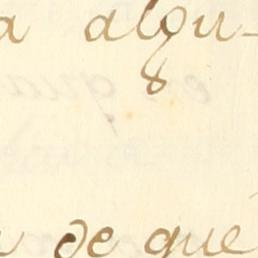 a algu-
de qué